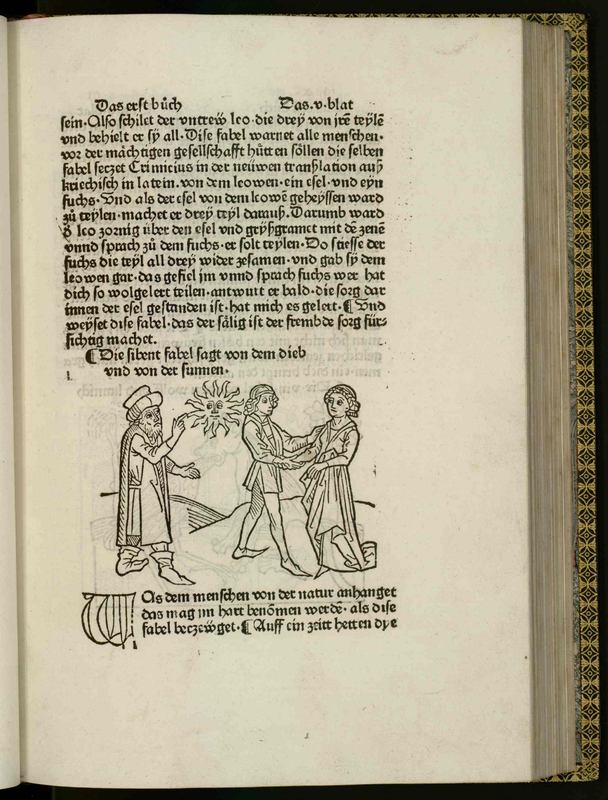 Das erst bůch Das .v. blat
sein. Also schilet der vntreẅ leo die drey von jrē teylē
vnd behielt er sÿ all. Dise fabel warnet alle menschen.
vor der måchtigen gesellschafft hůtten söllen die selben
fabel seczet Crimicius in der neüwen tranßlation auß
kriechisch in latein. von dem leowen. ein esel. vnd eyn
fuchs. Vnd als der esel von dem leowē geheyssen ward
zů teylen. machet er drey teyl darauß. Darumb ward
ď leo zornig über den esel vnd gryßgramet mit dē zenē
vnnd sprach zů dem fuchs. er solt teylen. Do stiesse der
fuchs die teyl all drey wider zesamen. vnd gab sÿ dem
leowen gar. das gefiel jm vnnd sprach fuchs wer hat
dich so wolgelert teilen. antwurt er bald. die sorg dar
innen der esel gestanden ist. hat mich es gelert. ¶ Vnd
weyset dise fabel. das der sålig ist der frembde sorg für⸗
sichtig machet.
¶ Die sibent fabel sagt von dem dieb
vnd von der sunnen.
WAs dem menschen von der natur anhanget
das mag jm hart benōmen werdē. als dise
fabel beczeẅget. ¶ Auff ein zeitt hetten dye